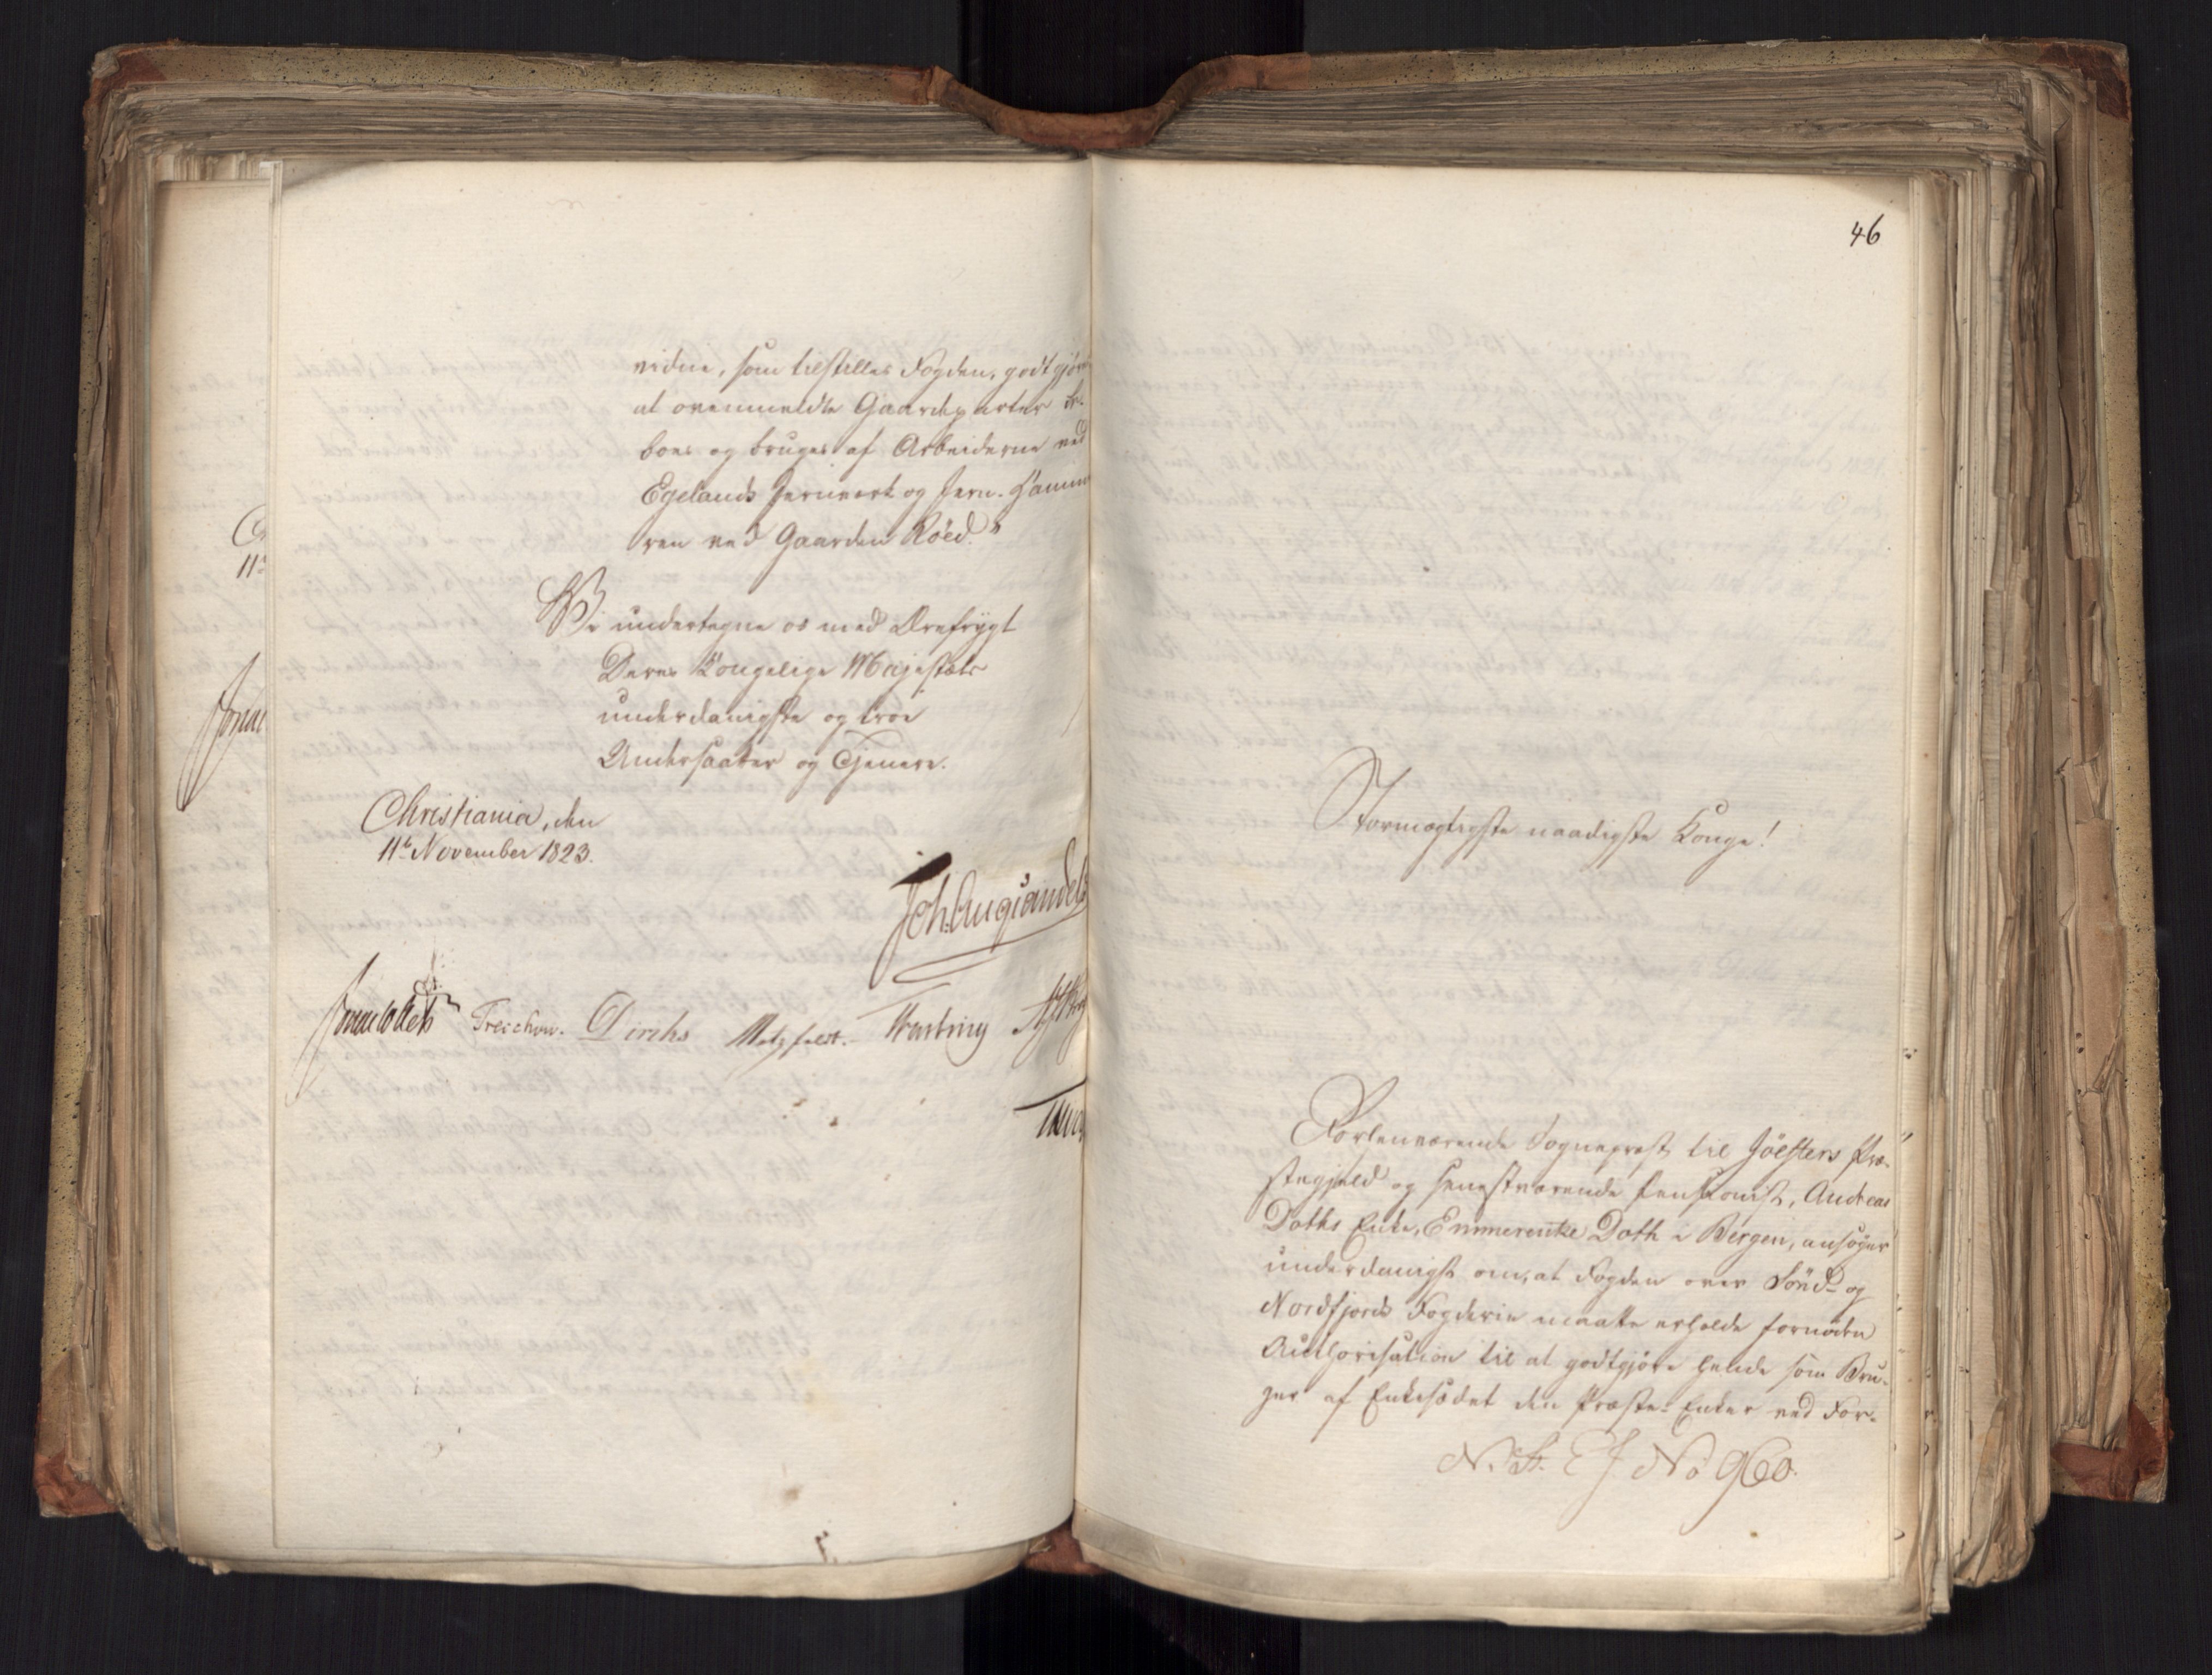 vidne, som tilstilles Fogden, godtgjøres
at ovenmeldte Gaardeparter be-
boes og bruges af Arbeiderne ved
Egelands Jernværk og Jern-Hamme
ren ved Gaarden Röed."
Vi undertegne os med Ærefrygt
Deres Kongelige Majestæts
underdanigste og troe
Undersaatter og Tjenere.
Christiania, den
11te November 1823.
Joh. Aug. Sandels
Jonas Collett Treschow. Diriks Motzfeldt. Krag
46
Stormægtigste naadigste Konge!
Forhenværende Sognepræst til Jölsters Præ-
stegjeld og senestværende Pensionist, Andreas
Doths Enke, Emmerentze Doth i Bergen, ansøger
underdanigst om, at Fogden over Sönd- og
Nordfjords Fogderie maatte erholde fornøden
Authorisation til at godtgjøre hende som Bru-
ger af Enkesædet den Præste-Enker ved For-
N. St. E J. No 960.
11te